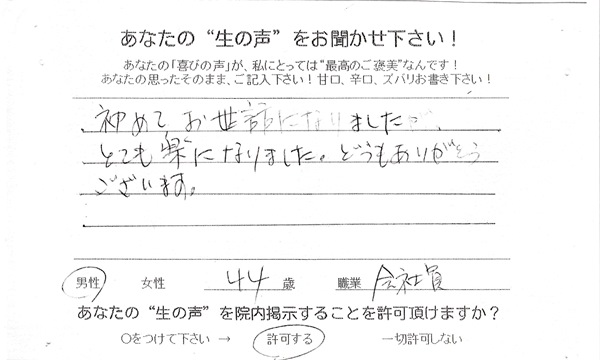 あなたの“生の声”をお聞かせ下さい！
あなたの「喜びの声」が、私にとっては“最高のご褒美”なんです！
あなたの思ったそのまま、ご記入下さい！甘口、辛口、ズバリお書き下さい！
初めてお世話になりましたが、
とても楽になりました。どうもありがとう
ございます。
男性 女性 44 歳 職業 会社員
あなたの“生の声”を院内掲示することを許可頂けますか？
○をつけて下さい → 許可する 一切許可しない